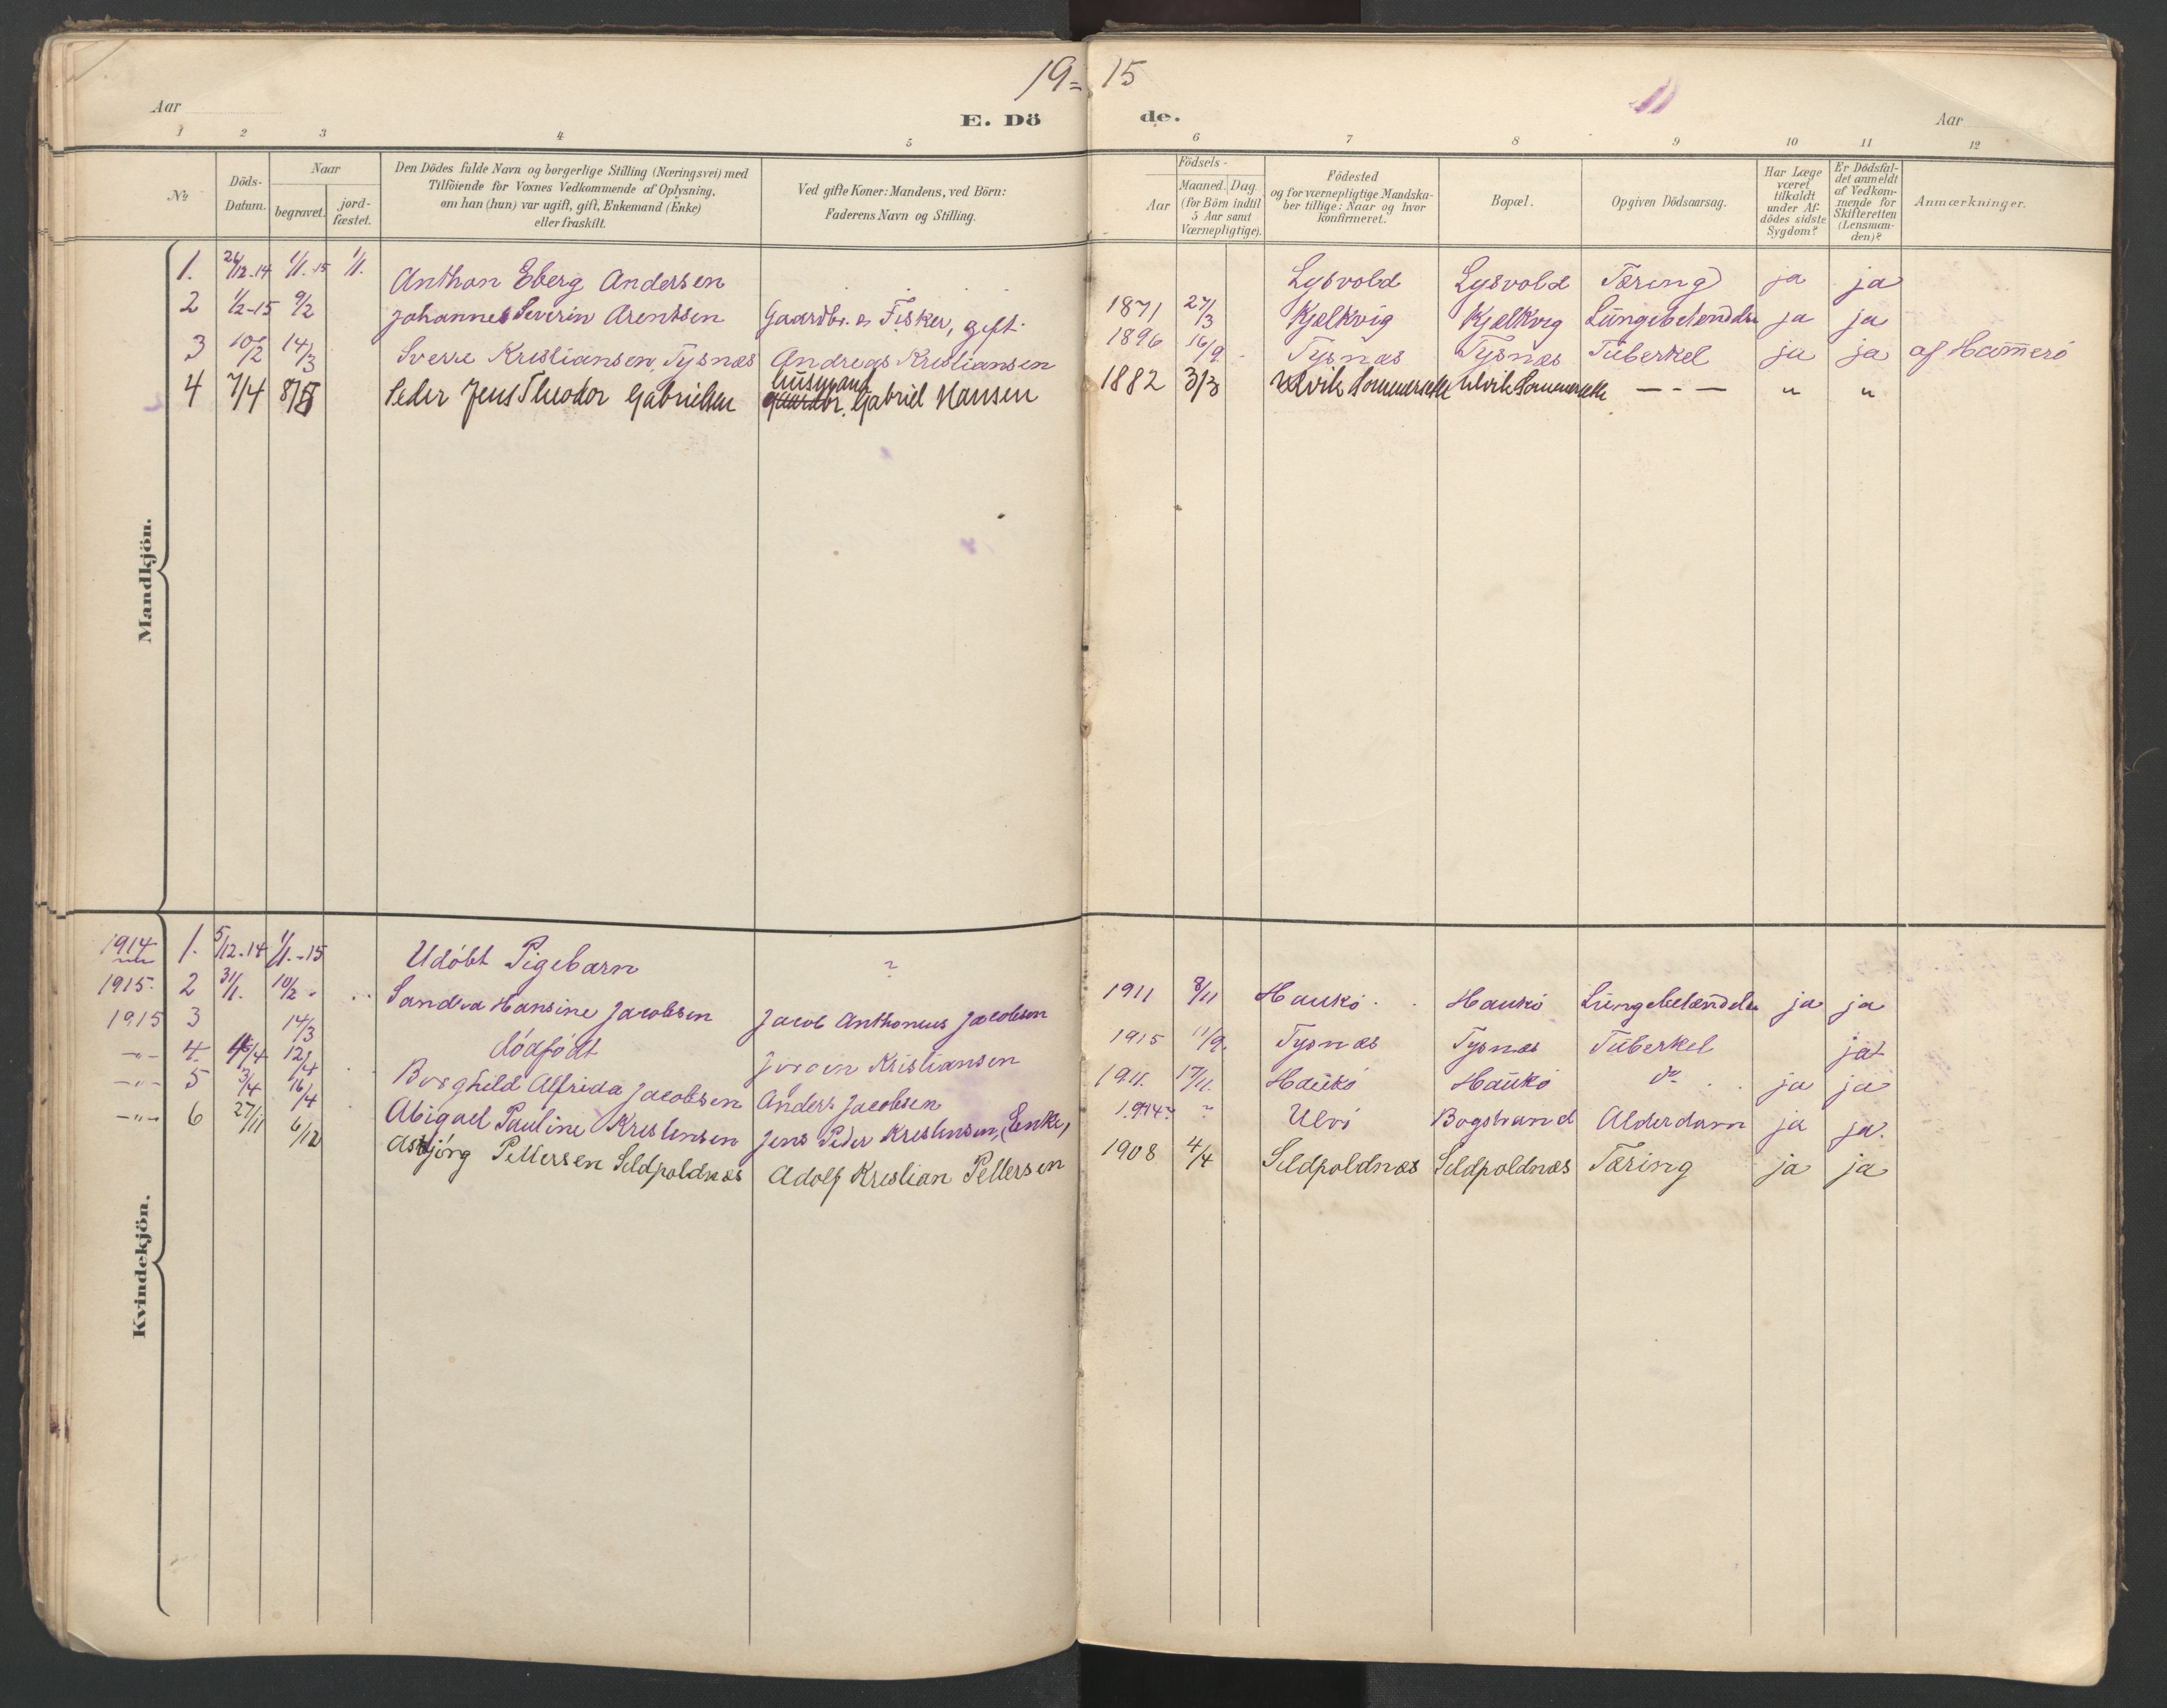 19= 15
Aar
E. Dö de.
Aar
1 2 3 4 5 6 7 8 9 10 11 12
No
Döds-
Datum.
Naar
begravet.
jord-
fæstet.
Den Dödes fulde Navn og borgerlige Stilling (Næringsvei) med
Tilföiende for Voxnes Vedkommende af Oplysning,
om han (hun) var ugift, gift, Enkemand (Enke)
eller fraskilt.
Ved gifte Koner: Mandens, ved Börn:
Faderens Navn og Stilling.
Födsels-
Aar
Maaned. Dag.
(for Börn indtil
5 Aar samt
Værnepligtige).
Födested
og for værnepligtige Mandska-
ber tillige: Naar og hvor
konfirmeret.
Bopæl.
Opgiven Dödsaarsag.
Har Læge
været
tilkaldt
under Af-
dödes sidste
Sygdom?
Er Dödsfal-
det anmeldt
af Vedkom-
mende for
Skifteretten
(Lensman-
den)?
Anmærkninger.
Mandkjön.
1. 24/12-14 1/1.15 1/1. Anthon Eberg Andersen Lysvold Lysvold Tæring ja ja
2 1/2-15 9/2 Johannes Severin Arentsen Gaardbr. og Fisker, gift. 1871 27/3 Kjælkvig Kjælkvig Lungebetændelse ja ja
3 10/2 14/3 Sverre Kristiansen, Tysnæs Andreas Kristiansen 1896 16/9 Tysnæs Tysnæs Tüberkel ja ja af Hammerö
husmand
4 7/4 8/5 Peder Jens Theodor Gabrielsen Gaardbr. Gabriel Hansen 1882 3/3 Ulvik Sommersette Ulvik Sommersette — - — " "
Kvindekjön.
1914 1. 5/12-14 1/1.-15 Udöbt Pigebarn ?
1915. 2 31/1. 10/2 Sandra Hansine Jacobsen Jacob Anthoneus Jacobsen 1911 8/11 Haukö Haukö Lungebetændelse ja ja
1915 3 14/3 dödfödt Jörgen Kristiansen 1915 11/9. Tysnæs Tysnæs Tüberkel jat
-"- 4. 4/4 12/4 Borghild Alfrida Jacobsen Anders Jacobsen 1911. 17/11. Haükö Haükö do ja ja
-"- 5 3/4 16/4 Abigael Pauline Kristensen Jens Peder Kristensen, (Enke) ? Ulvö Bogstrand Alderdom ja ja.
-"- 6 27/11 6/12 Asbjörg Pettersen Sildpoldnæs Adolf Kristian Pettersen 1908 4/4 Sildpoldnæs Sildpoldnæs Tæring ja ja